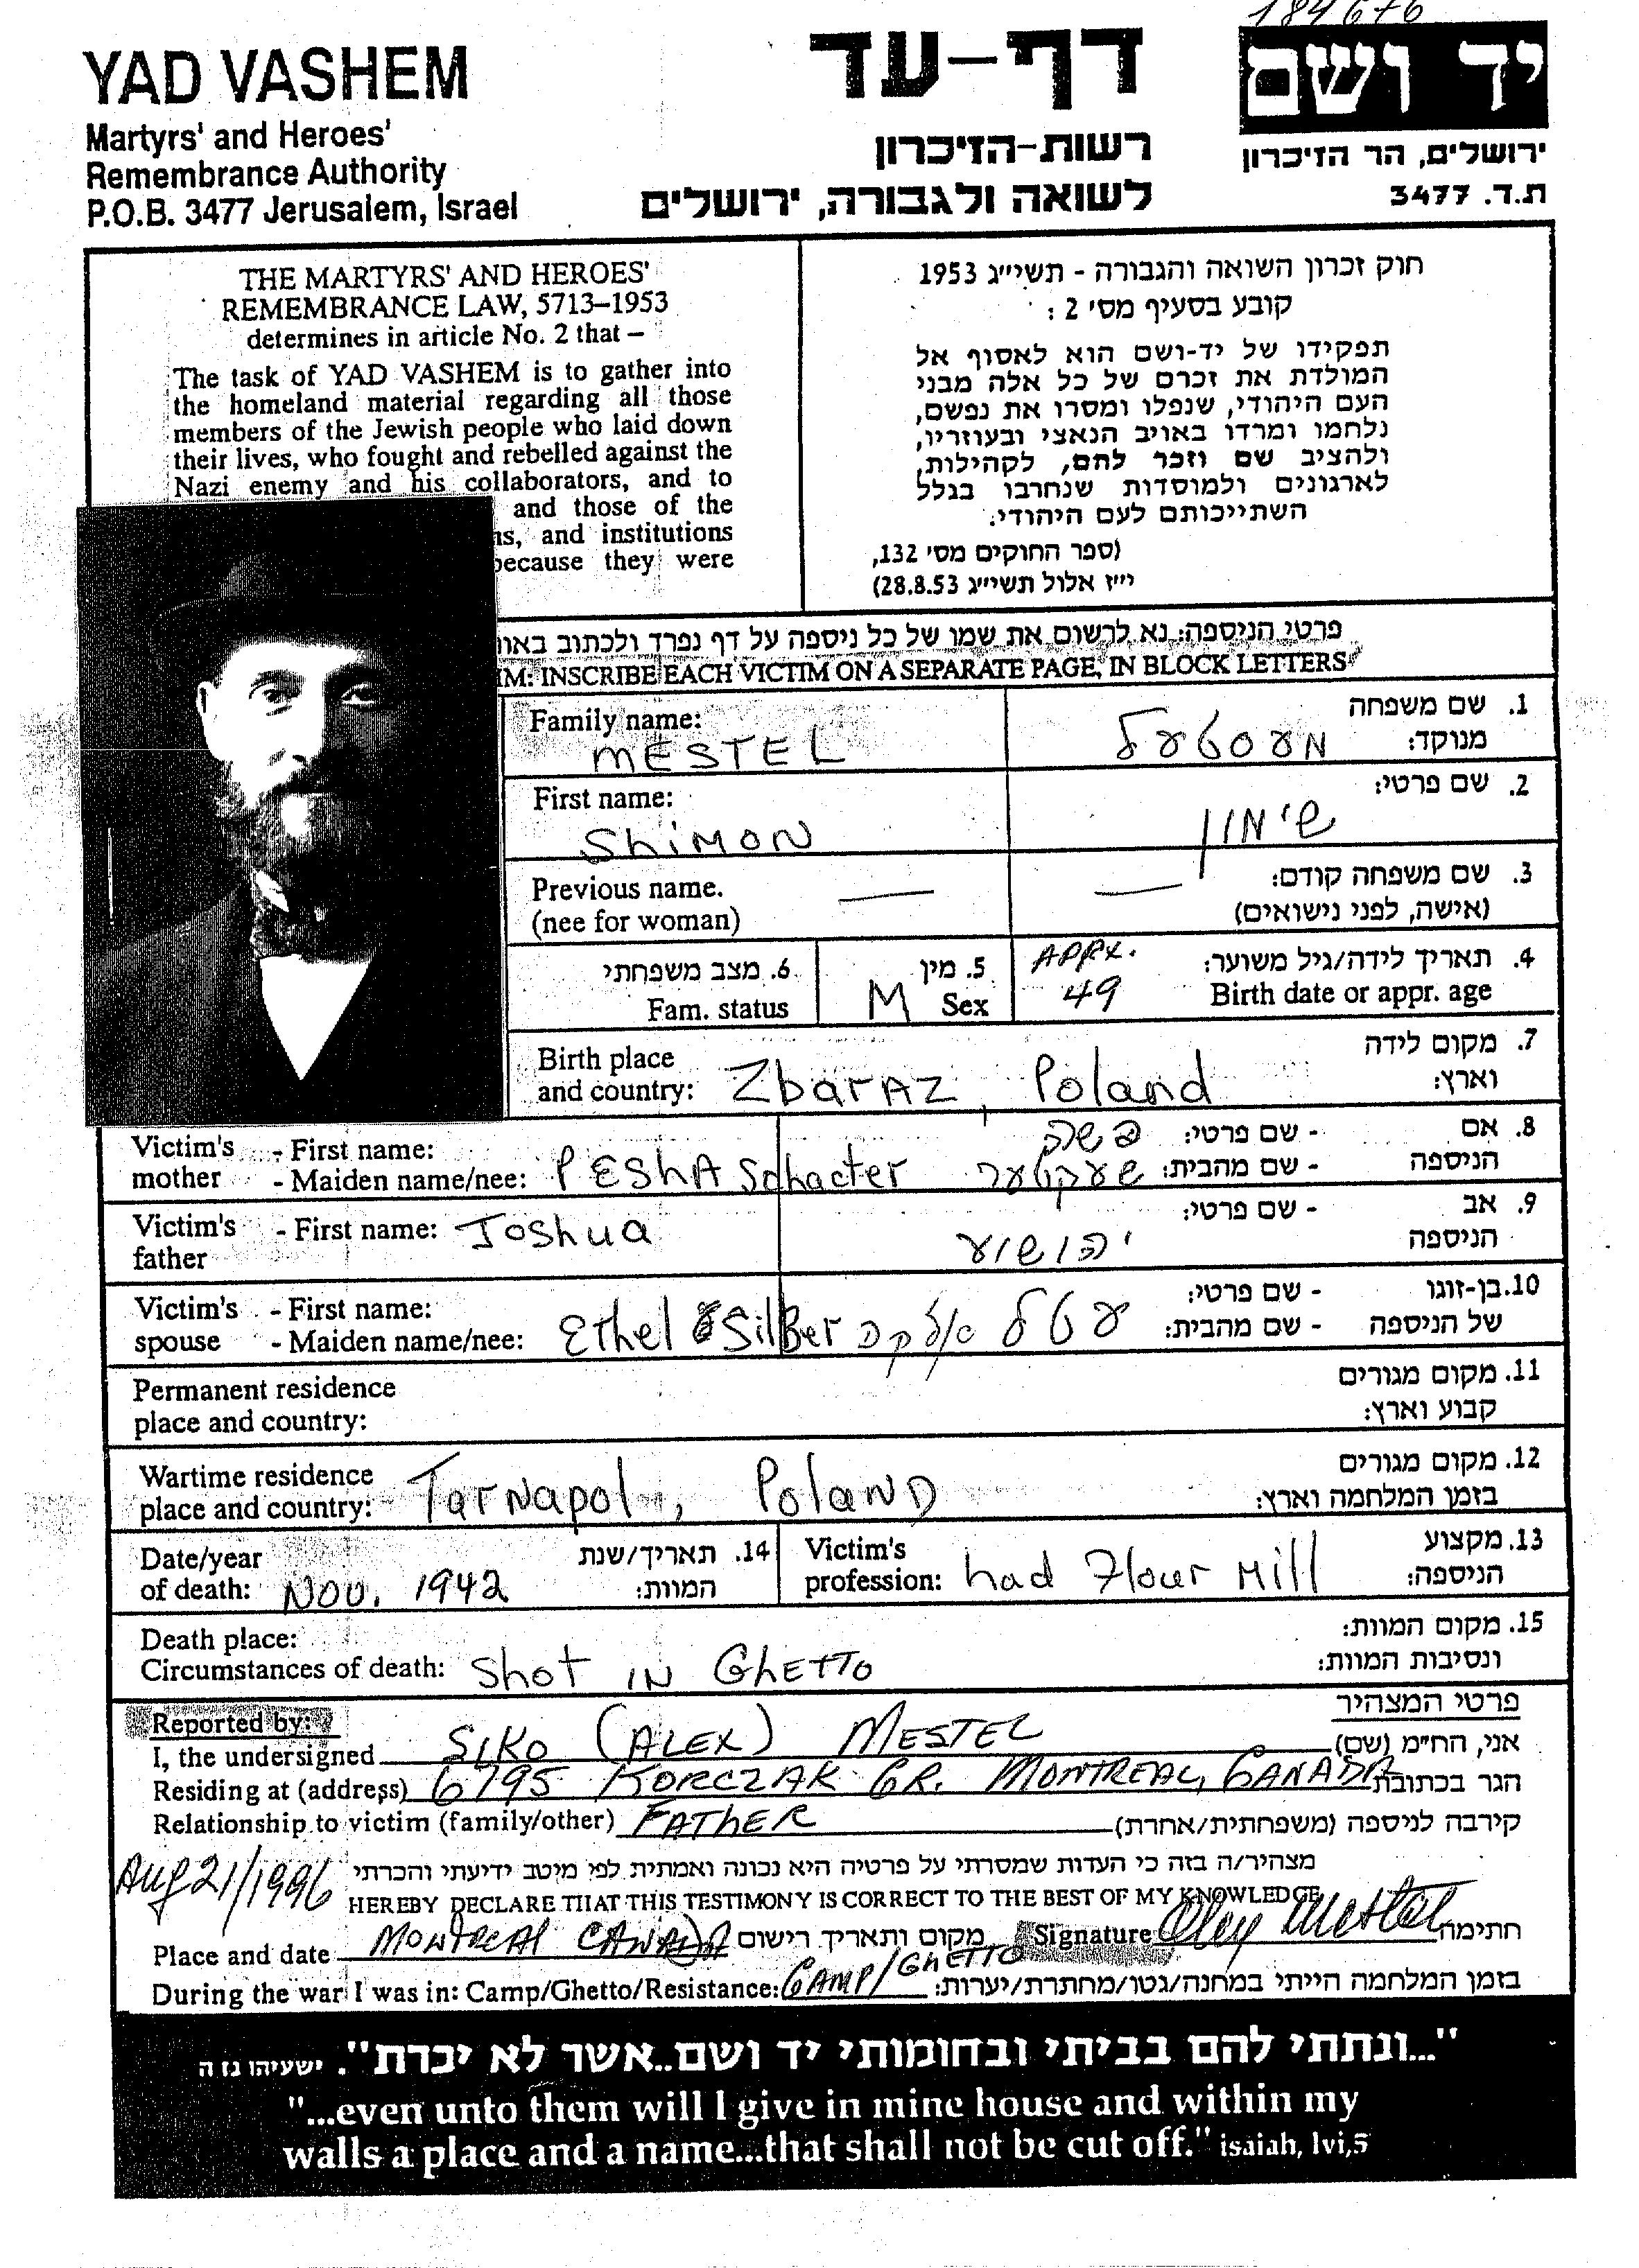 184676
YAD VASHEM
Martyrs' and Heroes'
Remembrance Authority
P.O.B. 3477 Jerusalem, Israel
דף-עד
רשות-הזיכרון
לשואה ולגבורה, ירושלים
יד ושם
ירושלים, הר הזיכרון
ת.ד. 3477
THE MARTYRS' AND HEROES'
REMEMBRANCE LAW, 5713–1953
determines in article No. 2 that –
The task of YAD VASHEM is to gather into
the homeland material regarding all those
members of the Jewish people who laid down
their lives, who fought and rebelled against the
Nazi enemy and his collaborators, and to
and those of the
ns, and institutions
because they were
חוק זכרון השואה והגבורה - תשי״ג 1953
קובע בסעיף מס׳ 2 :
תפקידו של יד-ושם הוא לאסוף אל
המולדת את זכרם של כל אלה מבני
העם היהודי, שנפלו ומסרו את נפשם,
נלחמו ומרדו באויב הנאצי ובעוזריו,
ולהציב שם וזכר להם, לקהילות,
לארגונים ולמוסדות שנחרבו בגלל
השתייכותם לעם היהודי.
(ספר החוקים מס׳ 132,
י״ז אלול תשי״ג 28.8.53)
פרטי הניספה: נא לרשום את שמו של כל ניספה על דף נפרד ולכתוב באות
IM: INSCRIBE EACH VICTIM ON A SEPARATE PAGE, IN BLOCK LETTERS
Family name:
MESTEL
1. שם משפחה
מנוקד:
מעסטעל
First name:
Shimon
2. שם פרטי:
שימון
Previous name.
(nee for woman)
—
3. שם משפחה קודם:
(אישה, לפני נישואים)
—
6. מצב משפחתי
Fam. status
5. מין
M Sex
4. תאריך לידה/גיל משוער:
Birth date or appr. age
APPX.
49
Birth place
and country: Zbaraz, Poland
7. מקום לידה
וארץ:
Victim's - First name:
mother - Maiden name/nee: PESHA Schacter
8. אם - שם פרטי: פשה
הניספה - שם מהבית:
Victim's - First name: Joshua
father
9. אב - שם פרטי:
הניספה
יהושוע
Victim's - First name:
spouse - Maiden name/nee: Ethel Silber
10. בן-זוגו - שם פרטי:
של הניספה - שם מהבית: עטל
Permanent residence
place and country:
11. מקום מגורים
קבוע וארץ:
Wartime residence
place and country: Tarnapol, Poland
12. מקום מגורים
בזמן המלחמה וארץ:
Date/year
of death: Nov. 1942
14. תאריך/שנת
המוות:
Victim's
profession: had Flour Mill
13. מקצוע
הניספה:
Death place:
Circumstances of death: Shot in Ghetto
15. מקום המוות:
ונסיבות המוות:
Reported by:
פרטי המצהיר
I, the undersigned SIKO (ALEX) MESTEL אני, הח״מ (שם)
Residing at (address) 6795 KORCZAK CR. MONTREAL, CANADA הגר בכתובת
Relationship to victim (family/other) FATHER קירבה לניספה (משפחתית/אחרת)
מצהיר/ה בזה כי העדות שמסרתי על פרטיה היא נכונה ואמתית לפי מיטב ידיעתי והכרתי
Aug 21/1996
HEREBY DECLARE THAT THIS TESTIMONY IS CORRECT TO THE BEST OF MY KNOWLEDGE
Place and date Montreal Canada מקום ותאריך רישום Signature Alex Mestel חתימה
During the war I was in: Camp/Ghetto/Resistance: CAMP/GHETTO בזמן המלחמה הייתי במחנה/גטו/מחתרת/יערות:
"...ונתתי להם בביתי ובחומותי יד ושם..אשר לא יכרת". ישעיהו נו ה
"...even unto them will I give in mine house and within my
walls a place and a name...that shall not be cut off." isaiah, lvi,5